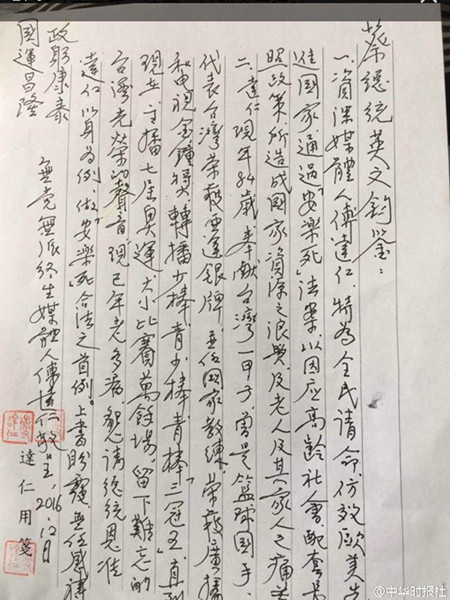 蔡總統英文鈞鑒：
一、資深媒體人傅達仁，特為全民請命，仿效歐美先
進國家通過"安樂死"法案，以因應高齡社會、配套長
照政策所造成國家資源之浪費及老人及其家人之痛苦
二、達仁現年84歲奉獻台灣一甲子，曾是籃球國手、
代表台灣榮獲亞運銀牌、並任國家教練、榮獲廣播
和電視金鐘獎，轉播少棒、青少棒、青棒"三冠王"直到
現在，主播七屆奧運大小比賽萬餘場，留下難忘的
台灣光榮的聲音，現已年老多病，懇請總統恩准
達仁以身為例，做"安樂死"合法之首例。上書盼覆，無任感禱
政躬康泰
國運昌隆
無黨無派終生媒體人傅達仁敬上 2016.12月
達仁用箋
@中华时报社